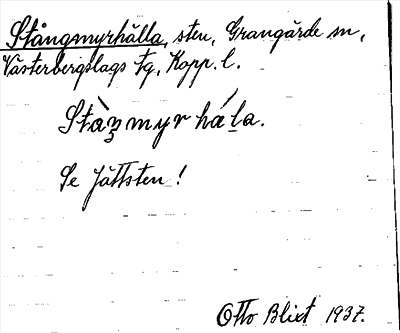 Stångmyrhälla, sten, Grangärde sn,
Västerbergslags fg, Kopp. l.
Stàŋmyrhála.
Se Jättsten!
Otto Blixt 1937.